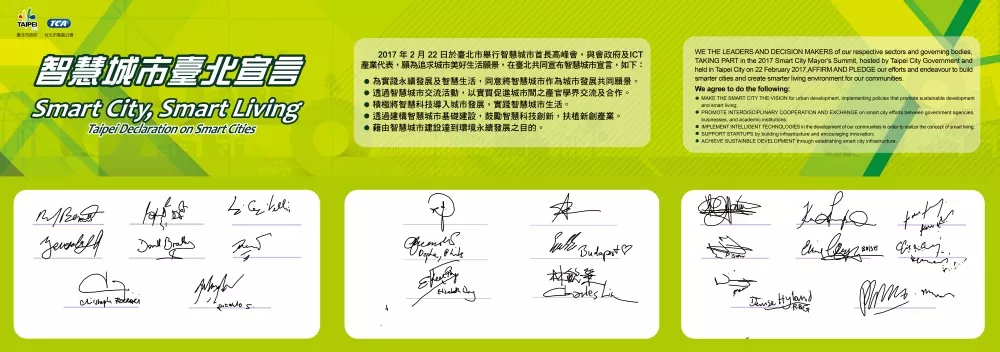 TAIPEI
臺北市政府
TCA
台北市電腦公會
智慧城市臺北宣言
Smart City, Smart Living
Taipei Declaration on Smart Cities
2017 年 2 月 22 日於臺北市舉行智慧城市首長高峰會，與會政府及ICT
產業代表，願為追求城市美好生活願景，在臺北共同宣布智慧城市宣言，如下：
● 為實踐永續發展及智慧生活，同意將智慧城市作為城市發展共同願景。
● 透過智慧城市交流活動，以實質促進城市間之產官學界交流及合作。
● 積極將智慧科技導入城市發展，實踐智慧城市生活。
● 透過建構智慧城市基礎建設，鼓勵智慧科技創新，扶植新創產業。
● 藉由智慧城市建設達到環境永續發展之目的。
WE THE LEADERS AND DECISION MAKERS of our respective sectors and governing bodies,
TAKING PART in the 2017 Smart City Mayor's Summit, hosted by Taipei City Government and
held in Taipei City on 22 February 2017,AFFIRM AND PLEDGE our efforts and endeavour to build
smarter cities and create smarter living environment for our communities.
We agree to do the following:
● MAKE THE SMART CITY THE VISION for urban development, implementing policies that promote sustainable development
and smart living;
● PROMOTE INTERDISCIPLINARY COOPERATION AND EXCHANGE on smart city efforts between government agencies,
businesses, and academic institutions;
● IMPLEMENT INTELLIGENT TECHNOLOGIES in the development of our communities in order to realize the concept of smart living;
● SUPPORT STARTUPS by building infrastructure and encouraging innovation;
● ACHIEVE SUSTAINBLE DEVELOPMENT through establishing smart city infrastructure.
David Bradley
Christophe
Ricardo S.
Budapest♡
Elizabeth Dong
林敏華
Charles Lin
Denise Hyland